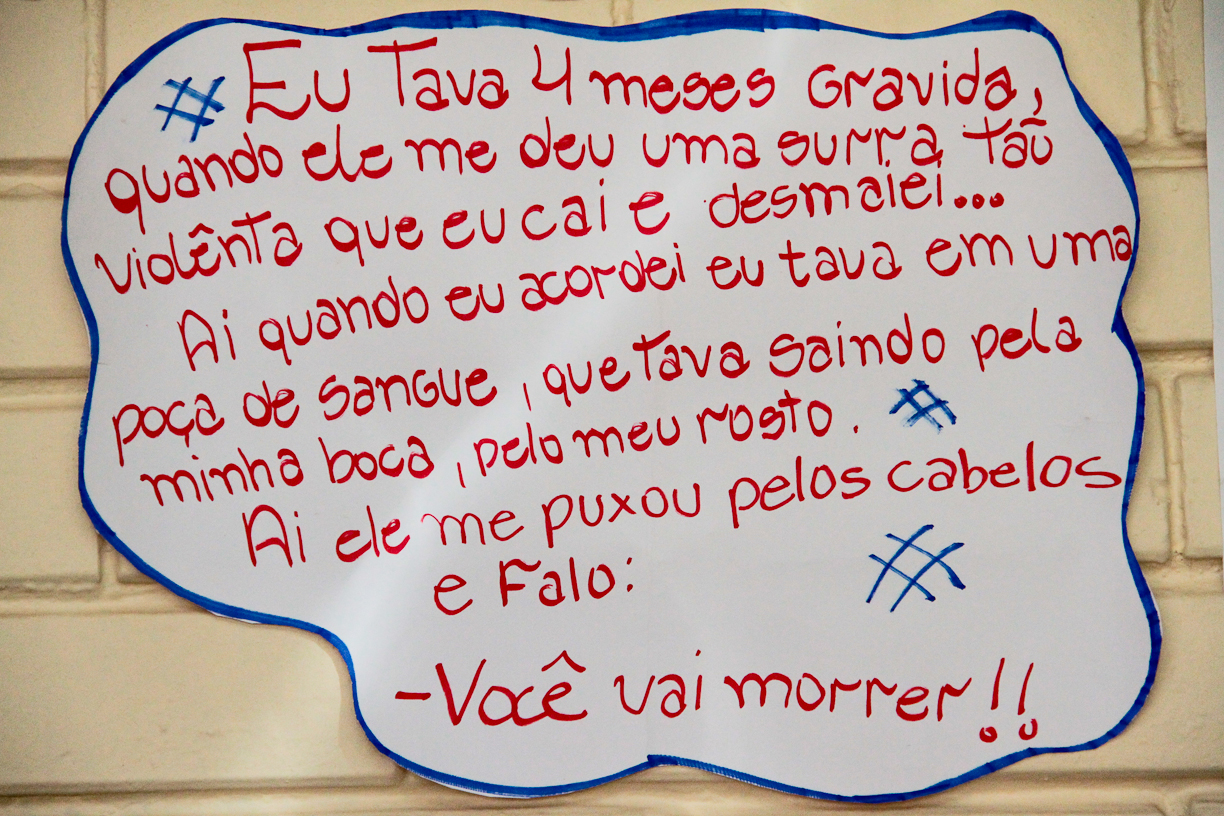 # Eu Tava 4 meses Gravida,
quando ele me deu uma surra taõ
violênta que eu cai e desmaiei...
Ai quando eu acordei eu tava em uma
poça de sangue, que tava saindo pela
minha boca, pelo meu rosto. #
Ai ele me puxou pelos cabelos
e Falo: #
-Você vai morrer!!